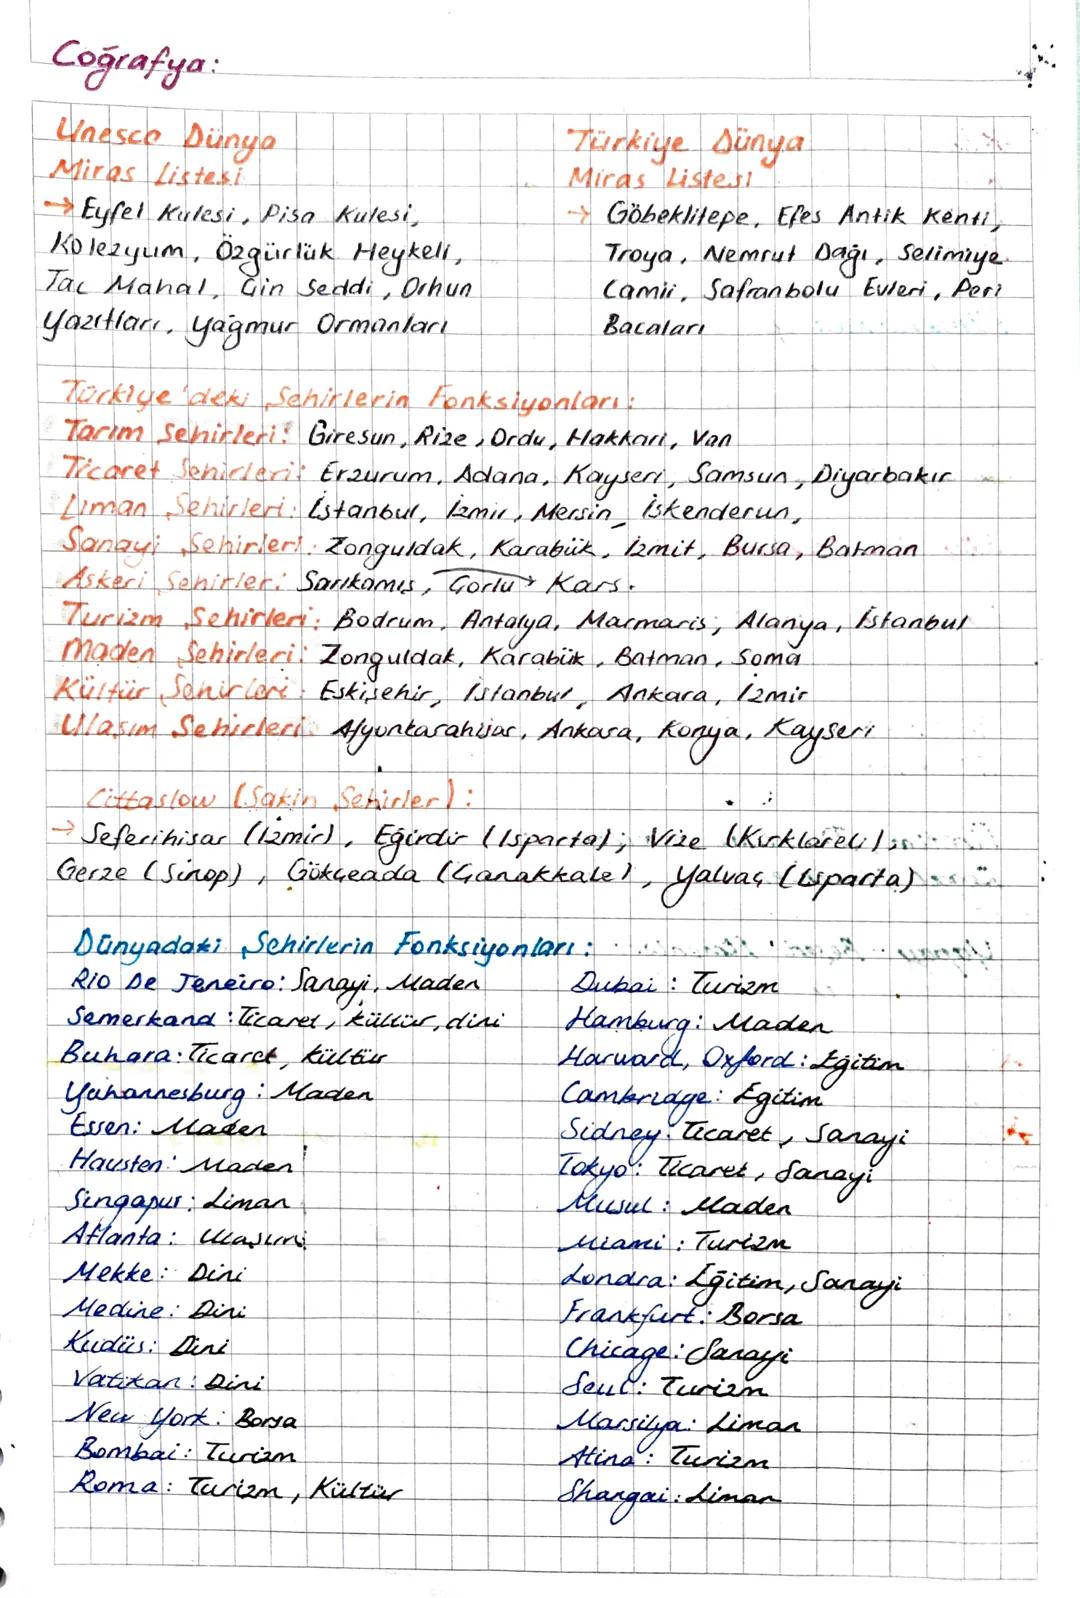 Coğrafya:
Unesco Dünya
Miras Listesi
→ Eyfel Kulesi, Pisa Kulesi,
Kolezyum, Özgürlük Heykeli,
Tac Mahal, Çin Seddi, Orhun
Yazıtları, Yağmur Ormanları
Türkiye Dünya
Miras Listesi
→ Göbeklitepe, Efes Antik Kenti,
Troya, Nemrut Dağı, Selimiye
Camii, Safranbolu Evleri, Peri
Bacaları
Türkiye'deki Şehirlerin Fonksiyonları:
Tarım Şehirleri: Giresun, Rize, Ordu, Hakkari, Van
Ticaret Şehirleri: Erzurum, Adana, Kayseri, Samsun, Diyarbakır
Liman Şehirleri: İstanbul, İzmir, Mersin, İskenderun,
Sanayi Şehirleri: Zonguldak, Karabük, İzmit, Bursa, Batman
Askeri Şehirler: Sarıkamış, Çorlu → Kars.
Turizm Şehirleri: Bodrum, Antalya, Marmaris, Alanya, İstanbul
Maden Şehirleri: Zonguldak, Karabük, Batman, Soma
Kültür Şehirleri: Eskişehir, İstanbul, Ankara, İzmir
Ulaşım Şehirleri: Afyonkarahisar, Ankara, Konya, Kayseri
Cittaslow (Sakin Şehirler):
→ Seferihisar (İzmir), Eğirdir (Isparta), Vize (Kırklareli),
Gerze (Sinop), Gökçeada (Çanakkale), Yalvaç (Isparta)
Dünyadaki Şehirlerin Fonksiyonları:
Rio De Jeneiro: Sanayi, Maden
Semerkand: Ticaret, kültür, dini
Buhara: Ticaret, kültür
Yahannesburg: Maden
Essen: Maden
Hausten: Maden
Singapur: Liman
Atlanta: Ulaşım
Mekke: Dini
Medine: Dini
Kudüs: Dini
Vatikan: Dini
New York: Borsa
Bombai: Turizm
Roma: Turizm, Kültür
Dubai: Turizm
Hamburg: Maden
Harward, Oxford: Eğitim
Cambridge: Eğitim
Sidney: Ticaret, Sanayi
Tokyo: Ticaret, Sanayi
Musul: Maden
Miami: Turizm
Londra: Eğitim, Sanayi
Frankfurt: Borsa
Chicage: Sanayi
Seul: Turizm
Marsilya: Liman
Atina: Turizm
Shangai: Liman